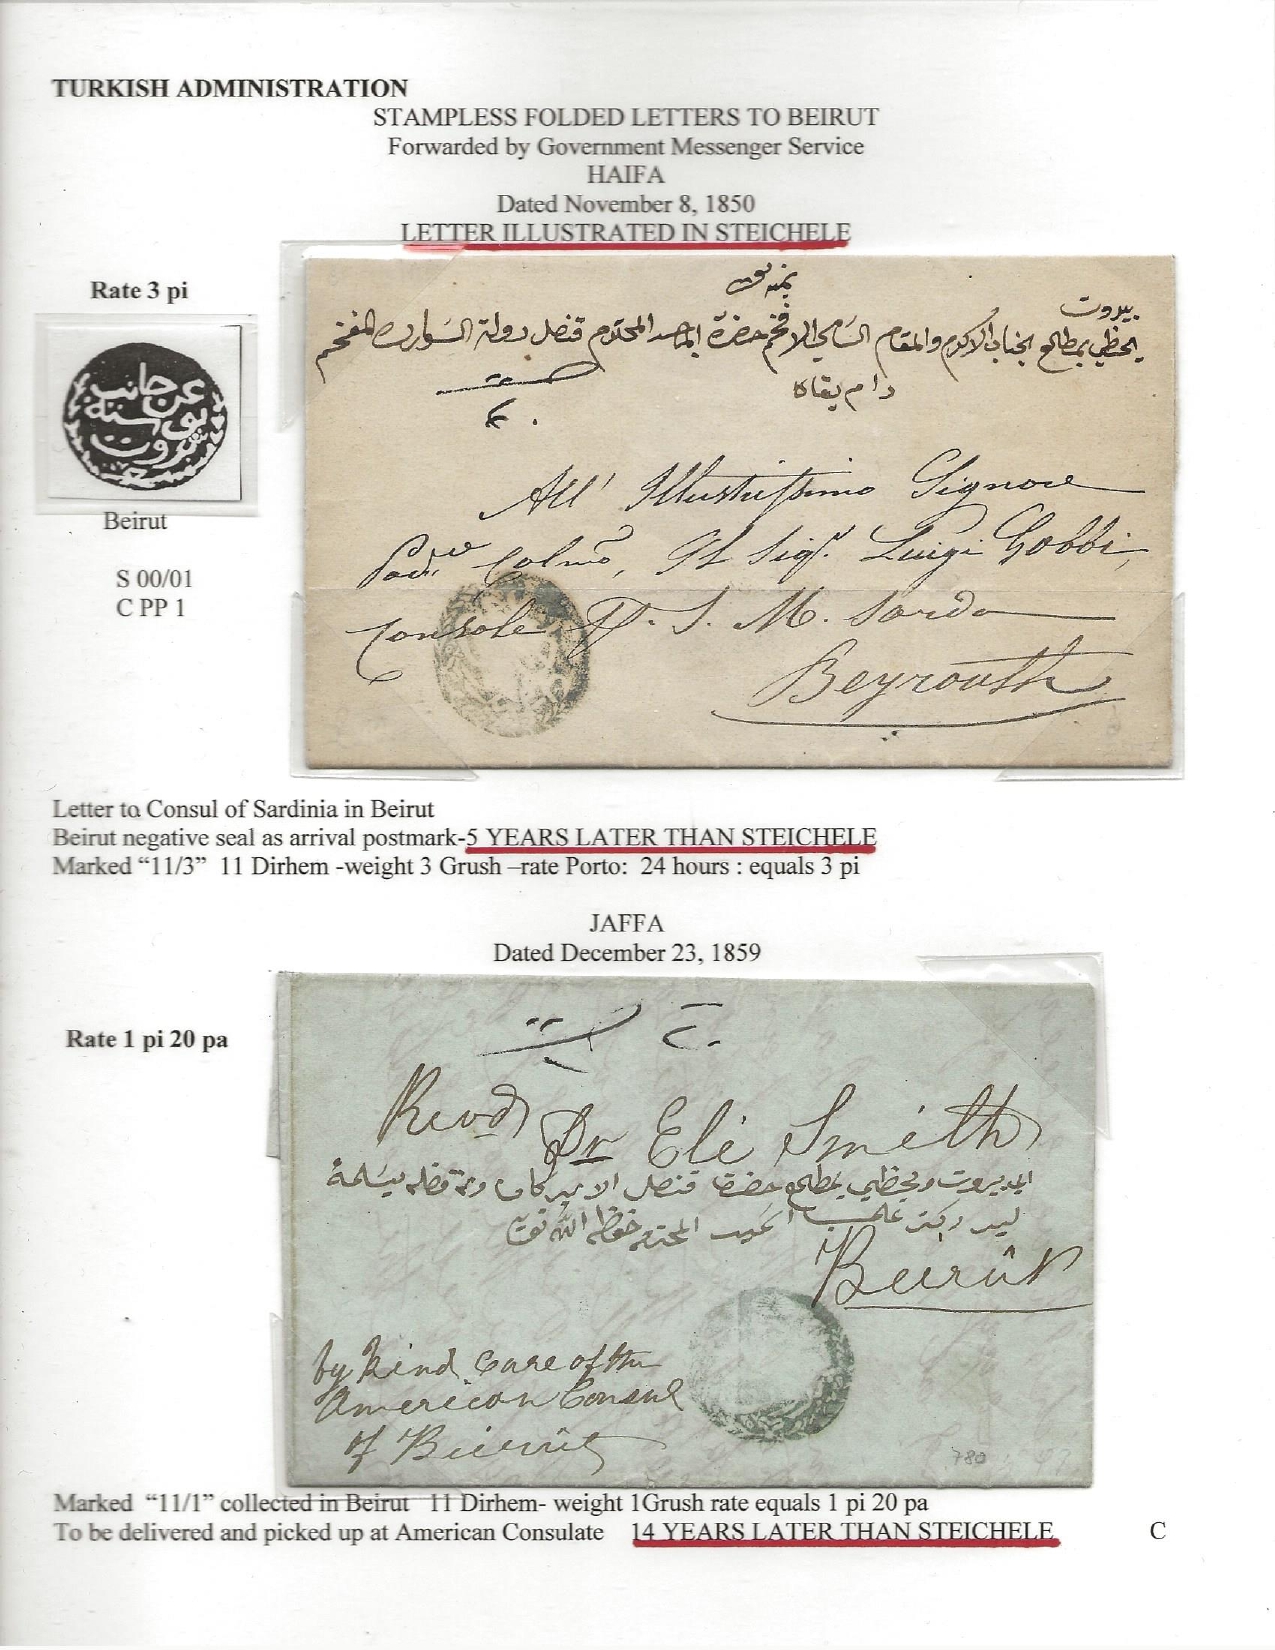 TURKISH ADMINISTRATION
STAMPLESS FOLDED LETTERS TO BEIRUT
Forwarded by Government Messenger Service
HAIFA
Dated November 8, 1850
LETTER ILLUSTRATED IN STEICHELE
Rate 3 pi
عن جانب
بوسته
بيروت
Beirut
S 00/01
C PP 1
بيروت
يحظى بمطالع الجناب الاكرم والمقام السامي الافخم حضرة الماجد المحترم قنصل دولة المفخم
دام بقاه
All' Illustrissimo Signore
Colmo, Il Sigr. Luigi Gobbi,
Console D. S. M. Sarda
Beyrouth
Letter to Consul of Sardinia in Beirut
Beirut negative seal as arrival postmark-5 YEARS LATER THAN STEICHELE
Marked “11/3” 11 Dirhem -weight 3 Grush –rate Porto: 24 hours : equals 3 pi
JAFFA
Dated December 23, 1859
Rate 1 pi 20 pa
Revd Dr Eli Smith
بيروت ويحظى بمطالع حضرة قنصل الاميركان
المحترم حفظه الله
Beirût
by kind care of the
American Consul
of Beirût
780
Marked “11/1” collected in Beirut 11 Dirhem- weight 1Grush rate equals 1 pi 20 pa
To be delivered and picked up at American Consulate 14 YEARS LATER THAN STEICHELE C